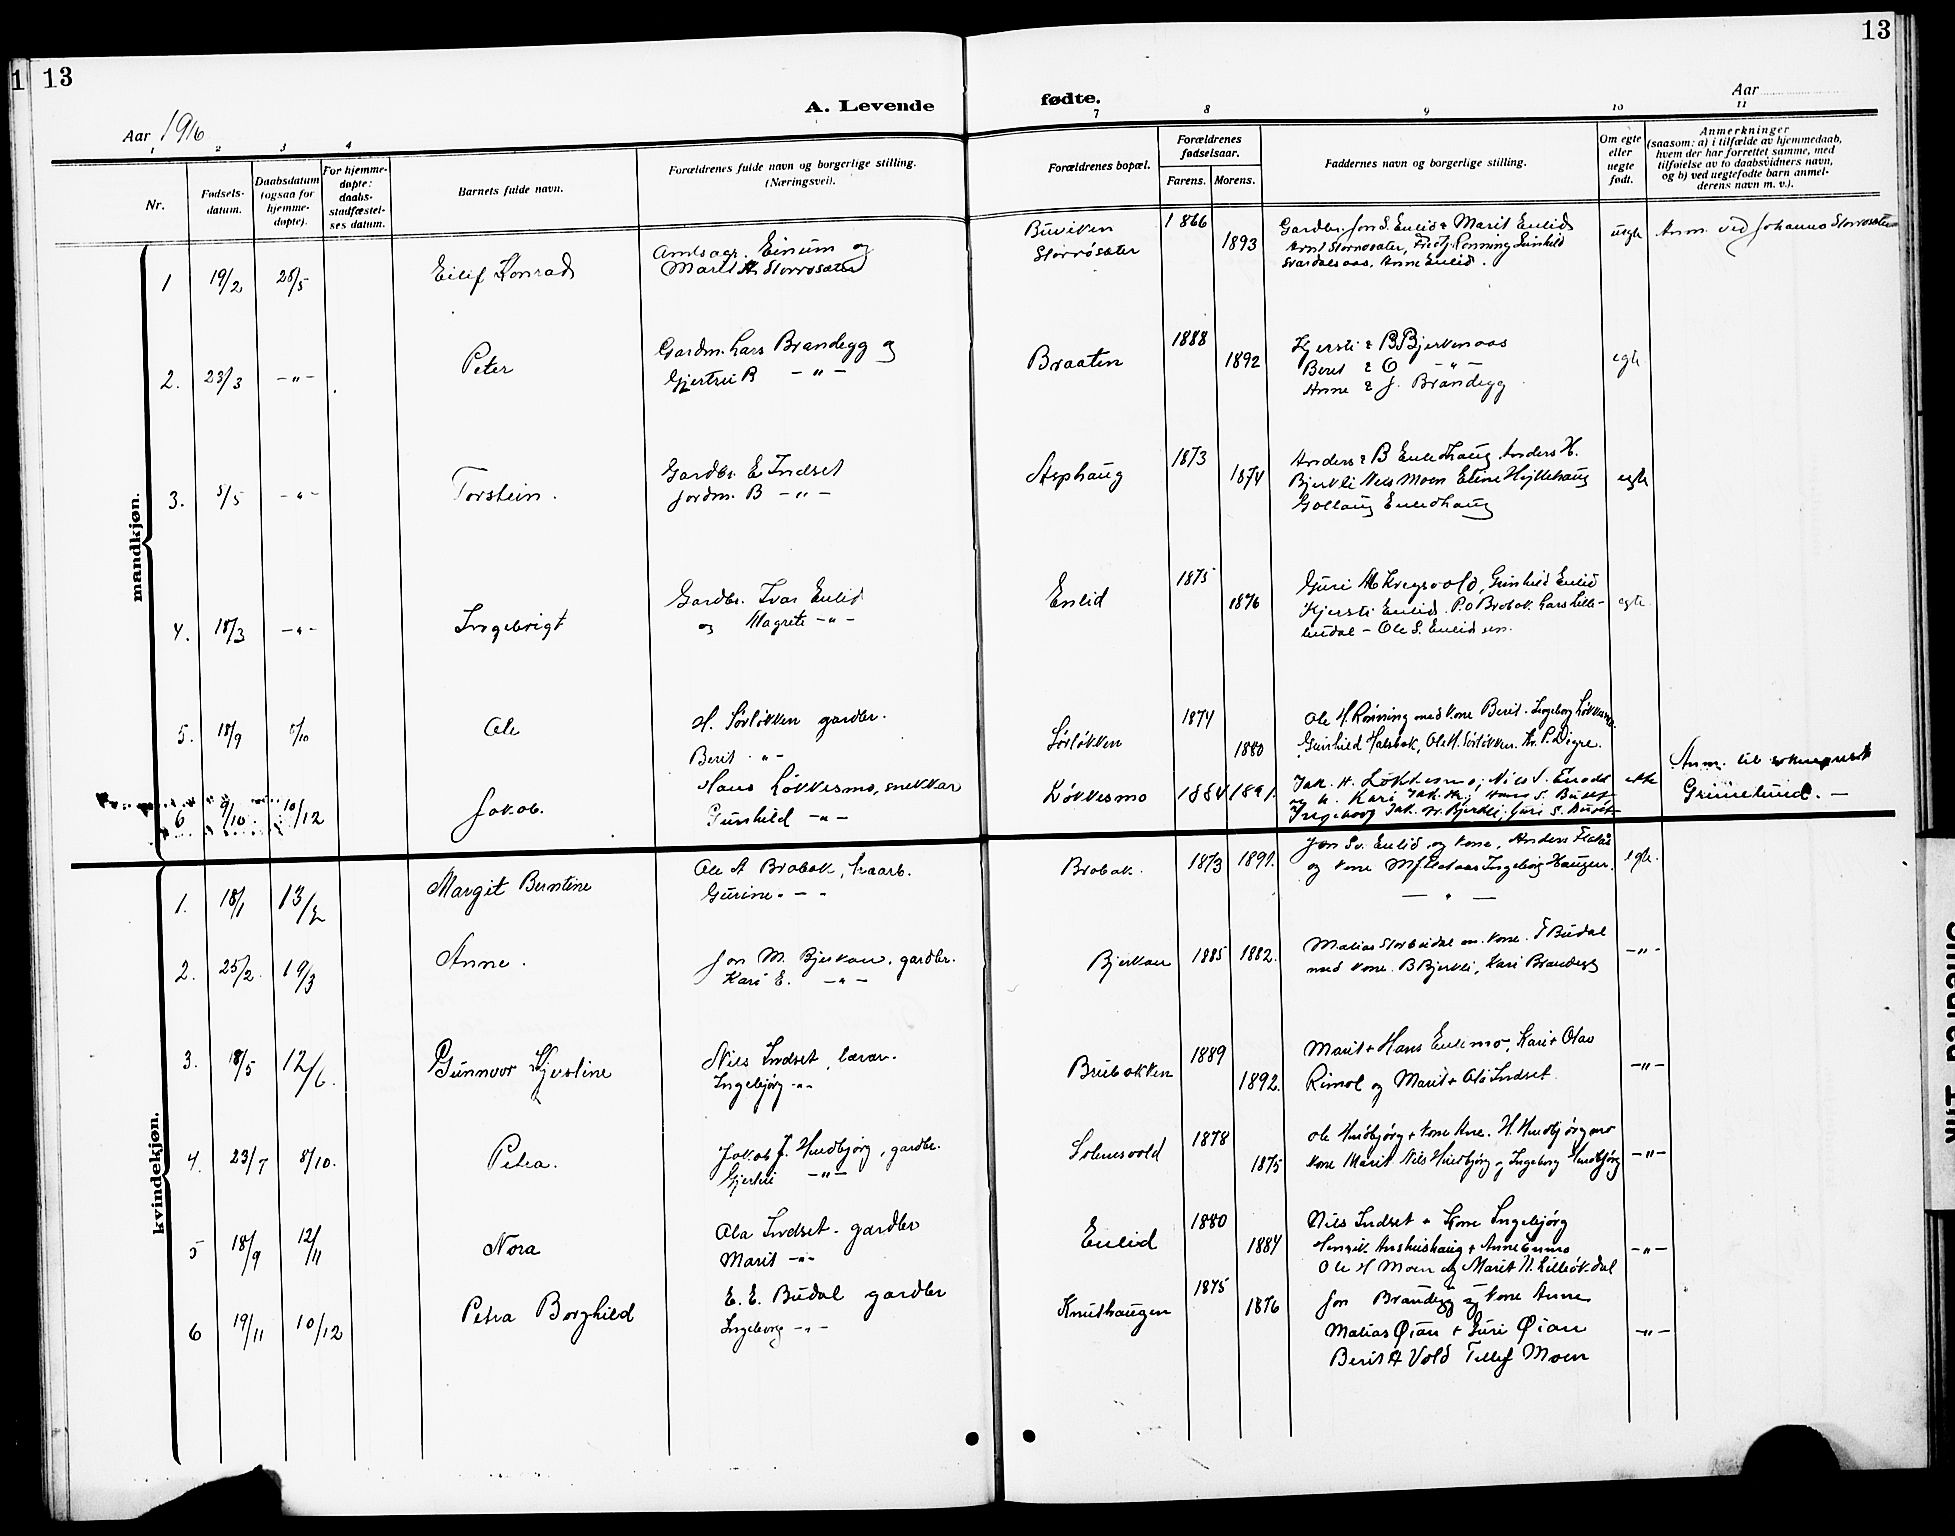 13
13
A. Levende fødte.
Aar 1916
Aar
1 2 3 4 7 8 9 10 11
Nr.
Fødsels-
datum.
Daabsdatum
(ogsaa for
hjemme-
døpte).
For hjemme-
døpte:
daabs-
stadfæstel-
ses datum.
Barnets fulde navn.
Forældrenes fulde navn og borgerlige stilling.
(Næringsvei).
Forældrenes bopæl.
Forældrenes
fødselsaar.
Farens. Morens.
Faddernes navn og borgerlige stilling.
Om egte
eller
uegte
født.
Anmerkninger
(saasom: a) i tilfælde av hjemmedaab,
hvem der har forrettet samme, med
tilføielse av to daabsvidners navn,
og b) ved uegtefødte barn anmel-
derens navn m. v.).
mandkjøn.
1 19/2 28/5 Eilif Konrad
Amtsagr. Einum og
Marit A Storrøsæter
Buviken
Storrøsæter
1866 1893
Gardbr. Jon S. Enlid & Marit Enlid
Arnt Storrøsæter, Rønning Gunhild
Svardalsaas, Anne Enlid.
uegte
Anm. ved Johanna Storrøsæter
2. 23/3 -"- Peter
Gardm. Lars Brandegg og
Gjertru B -"-
Braaten
1888 1892
Kjersti & B Bjerkenaas
Beret & O -"-
Anne & J. Brandegg
egte
3. 5/5 -"- Torstein.
Gardbr. E Indset
Jordm. B -"-
Asphaug
1873 1874
Anders & B Enlidhaug Anders H.
Bjerkli Nils Moen Eline Hyttehaug
Gollaug Enlidhaug
egte
4. 18/3 -"- Ingebrigt
Gardbr. Ivar Enlid
og Magrete -"-
Enlid
1875 1876
Guri M Kregsvold, Gunhild Enlid
Kjersti Enlid. P.O Brobak. Lars Lille-
budal - Ole S. Enlid sen.
egte.
5. 18/9 8/10 Ole
H. Sørløkken gardbr.
Berit -"-
Sørløkken
1874 1880
Ole H. Rønning med kone Berit. Ingeborg Løkken
Gunhild Halsbak, Ole H. Sørløkken. Kr. P. Digre.
6 9/10 10/12 Jakob.
Hans Løkkesmo, snekkar
Gunhild -"-
Løkkesmo
1884 1891.
Jak. H. Løkkesmo; Nils S. Enodd
og k. Kari Jak. Hr; Hans S. Budal
Ingeborg Jak. Bjerkli; Guri S.
ekte
Anm. til sokneprest
Grimelund. -
kvindekjøn.
1. 18/1 13/2 Margit Berntine
Ole A Brobak, haarb.
Gurine -"-
Brobak.
1873 1891.
Jon Sv. Enlid og kone, Anders Flataas
og kone Ingeborg Haugen.
- " -
egte.
2. 25/2. 19/3 Anne.
Jon M. Bjerkan, gardbr.
Kari E. -"-
Bjerkan
1885 1882.
Matias Storbudal m. kone. T Budal
med kone. B Bjerkli, Kari Brandegg
-"-
3. 18/5 12/6. Gunnvor Kjerstine
Nils Indset, lærar.
Ingebjørg -"-
Brubakken
1889 1892.
Marit + Hans Enlimo, Kari + Olav
Rimol og Marit + Ola Indset.
-"-
4. 23/7 8/10. Petra.
Jakob J. Hundbjørg, gardbr.
Gjertri -"-
Solemsvold
1878 1875
Ole Hundbjørg + kone Ane. H. Hundbjørg m.
kone Marit. Nils Hundbjørg og Ingeborg Hundbjørg
-"-
5 18/9 12/11 Nora
Ola Indset - gardbr
Marit -"-
Enlid
1880 1884
Nils Indset + Kone Ingebjørg
Henrik Aushushaug + Anne Enmo
Ole H Moen og Marit N. Lilleøkdal
-"-
6 19/11 10/12 Petra Borghild
E. E. Budal gardbr
Ingeborg -"-
Knuthaugen
1875 1876
Jon Brandegg og kone Anne
Matias Øian + Guri Øian
Berit A Vold Tellef Moen
-"-